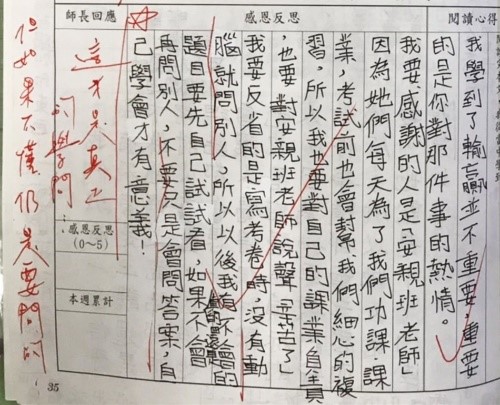 閱讀心得
我學到了輸贏並不重要,重要
的是你對那件事的熱情。
感恩反思
我要感謝的人是「安親班老師」
因為她們每天為了我們功課.課
業,考試前也會幫我們細心的複
習,所以我也要對自己的課業負責
,也要對安親班老師說聲「辛苦了」
我要反省的是寫考卷時,沒有動
腦就問別人,所以以後我有不會的
題目要先自己試試看,如果不會
再問別人,不要只是會問答案,自
己學會才有意義!
師長回應
這才是真正
的學問
但如果不懂仍是要問的
感恩反思
(0~5)
本週累計
35